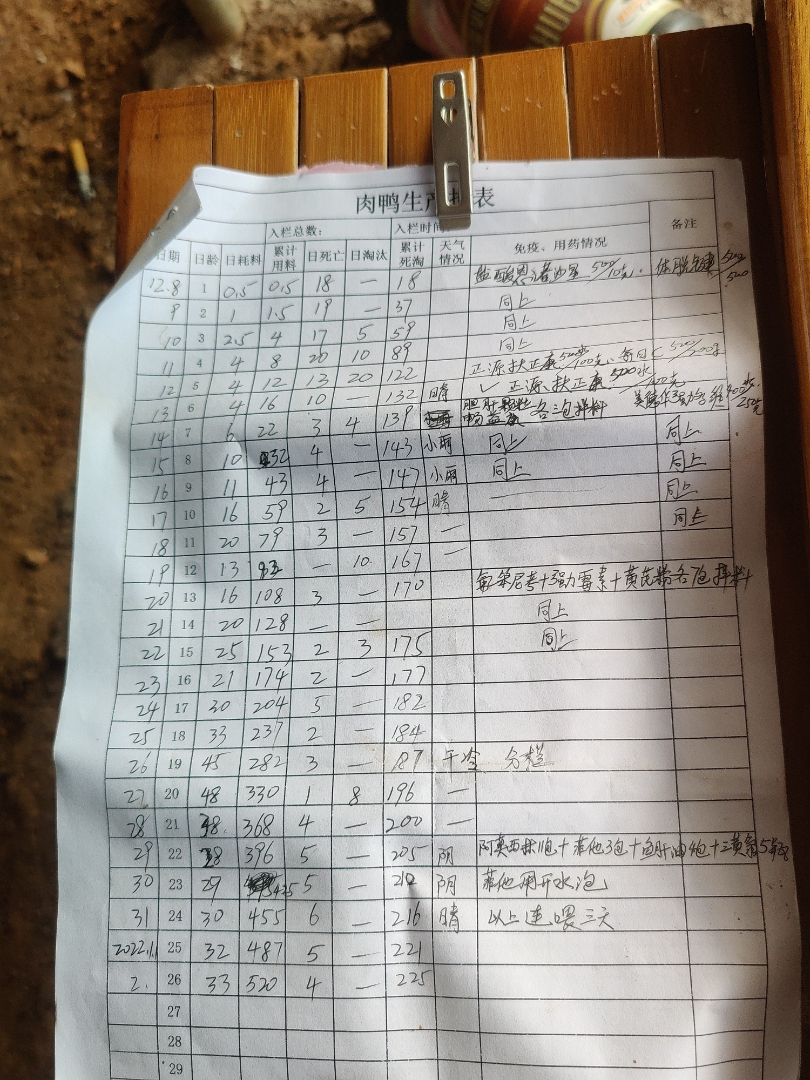 肉鸭生产 表
入栏总数: 入栏时间
日期 日龄 日耗料 累计用料 日死亡 日淘汰 累计死淘 天气情况 免疫、用药情况 备注
12.8 1 0.5 0.5 18 — 18 500/10克. 500/500
9 2 1 1.5 19 — 37 同上
10 3 2.5 4 17 5 59 同上
11 4 4 8 20 10 89 同上
12 5 4 12 13 20 122 正源.扶正康 /100克、 每日C 500/
13 6 4 16 10 — 132 晴 ✓ 正源、扶正康 500水/100克
14 7 6 22 3 4 139 胆肝颗粒 各三包拌料
15 8 10 32 4 — 143 小雨 同上 同上
16 9 11 43 4 — 147 小雨 同上 同上
17 10 16 59 2 5 154 晴 — 同上
18 11 20 79 3 — 157 — 同上
19 12 13 92 — 10 167 —
20 13 16 108 3 — 170 氟苯尼考+强力霉素+黄芪粉各7包拌料
21 14 20 128 — — 同上
22 15 25 153 2 3 175 同上
23 16 21 174 2 — 177
24 17 30 204 5 — 182
25 18 33 237 2 — 184
26 19 45 282 3 — 187 干冷 分栏
27 20 48 330 1 8 196 —
28 21 38 368 4 — 200 —
29 22 28 396 5 — 205 阴 阿莫西林1包+ 他3包+鱼肝油4包+三黄
30 23 29 425 5 — 210 阴 他用开水泡
31 24 30 455 6 — 216 晴 以上连喂三天
2022.1.1 25 32 487 5 — 221
2. 26 33 520 4 — 225
27
28
29